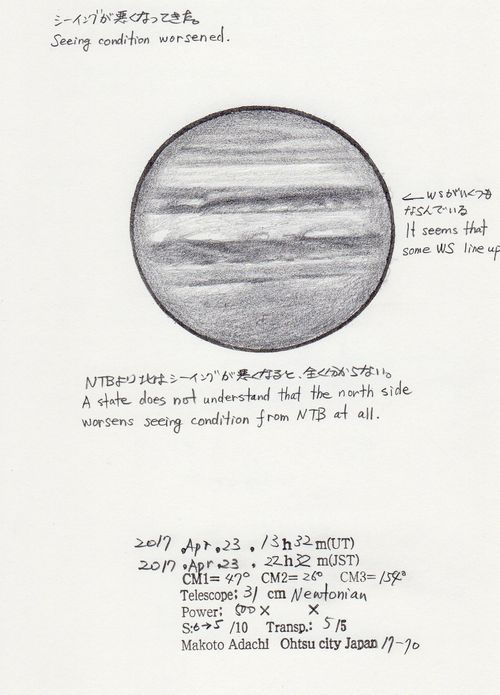 シーイングが悪くなってきた。
Seeing condition worsened.
← WSがいくつも
ならんでいる
It seems that
some WS line up
NTBより北はシーイングが悪くなると、全く分からない。
A state does not understand that the north side
worsens seeing condition from NTB at all.
2017 .Apr.23 . 13h32m(UT)
2017 .Apr.23 . 22h32m(JST)
CM1= 47° CM2= 26° CM3= 154°
Telescope: 31 cm Newtonian
Power: 500× ×
S:6→5 /10 Transp.: 5/5
Makoto Adachi Ohtsu city Japan 17-70